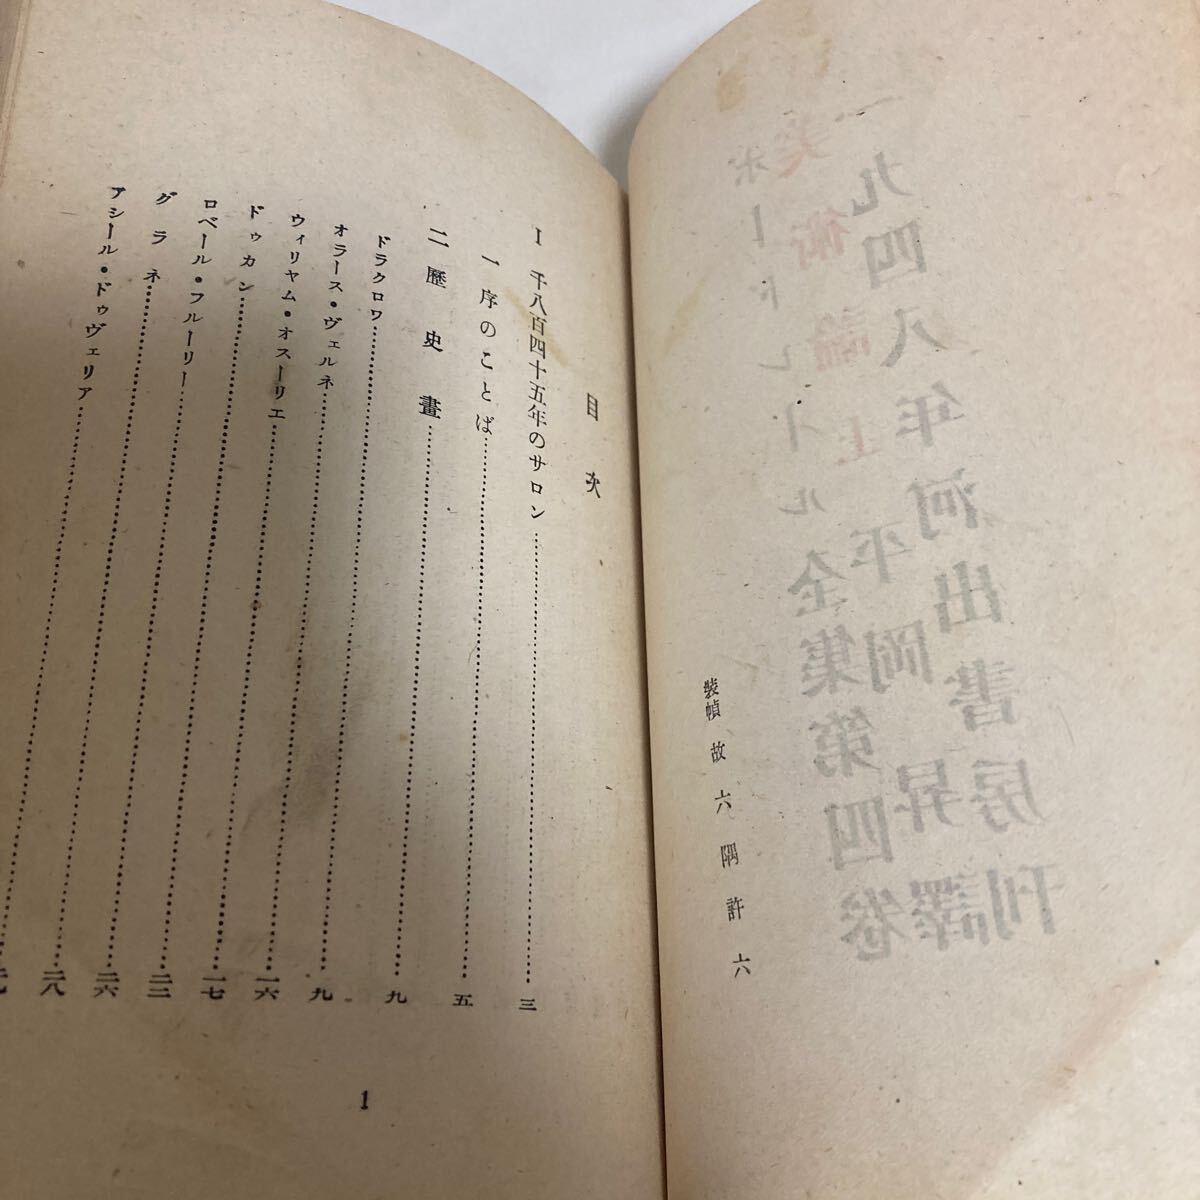 装幀 故 六隅許六
目次
I 千八百四十五年のサロン……三
一 序のことば……五
二 歷史畫……九
ドラクロワ……九
オラース・ヴェルネ……一六
ウィリヤム・オスーリエ……一七
ドゥカン……二二
ロベール・フルーリー……二六
グラネ……二八
アシール・ドゥヴェリア
1
一九四八年河出書房刊
美術論 上 平岡昇譯
ボードレール全集第四卷